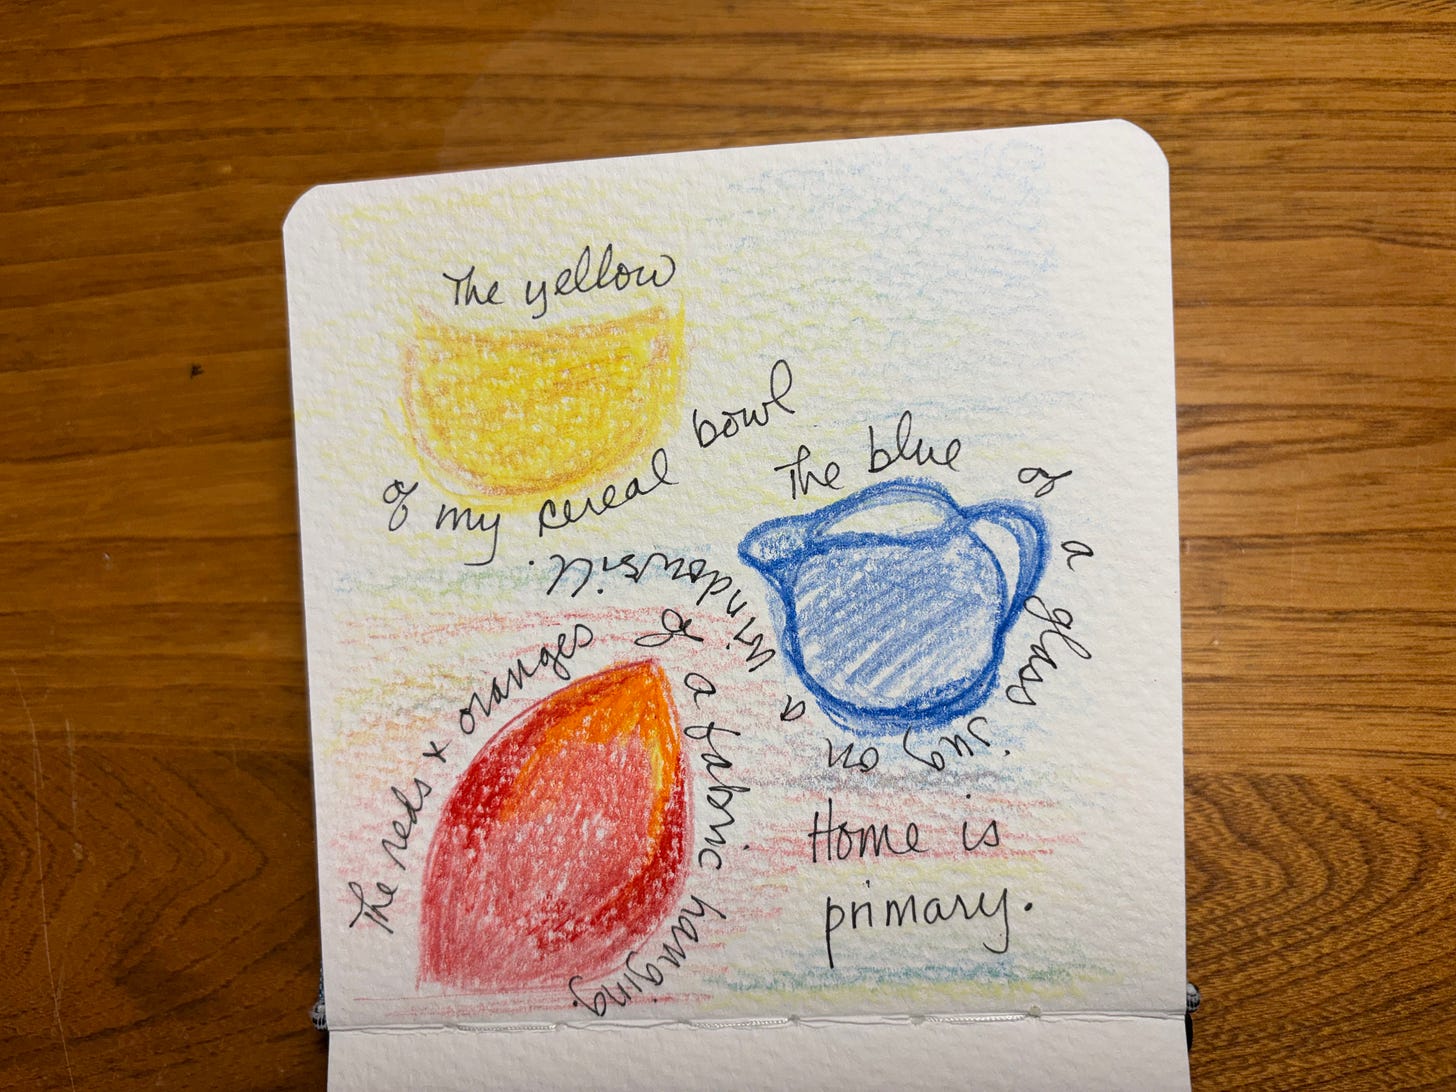 The yellow
of my cereal bowl
The blue of a glass jug on a windowsill.
The reds & oranges of a fabric hanging.
Home is
primary.